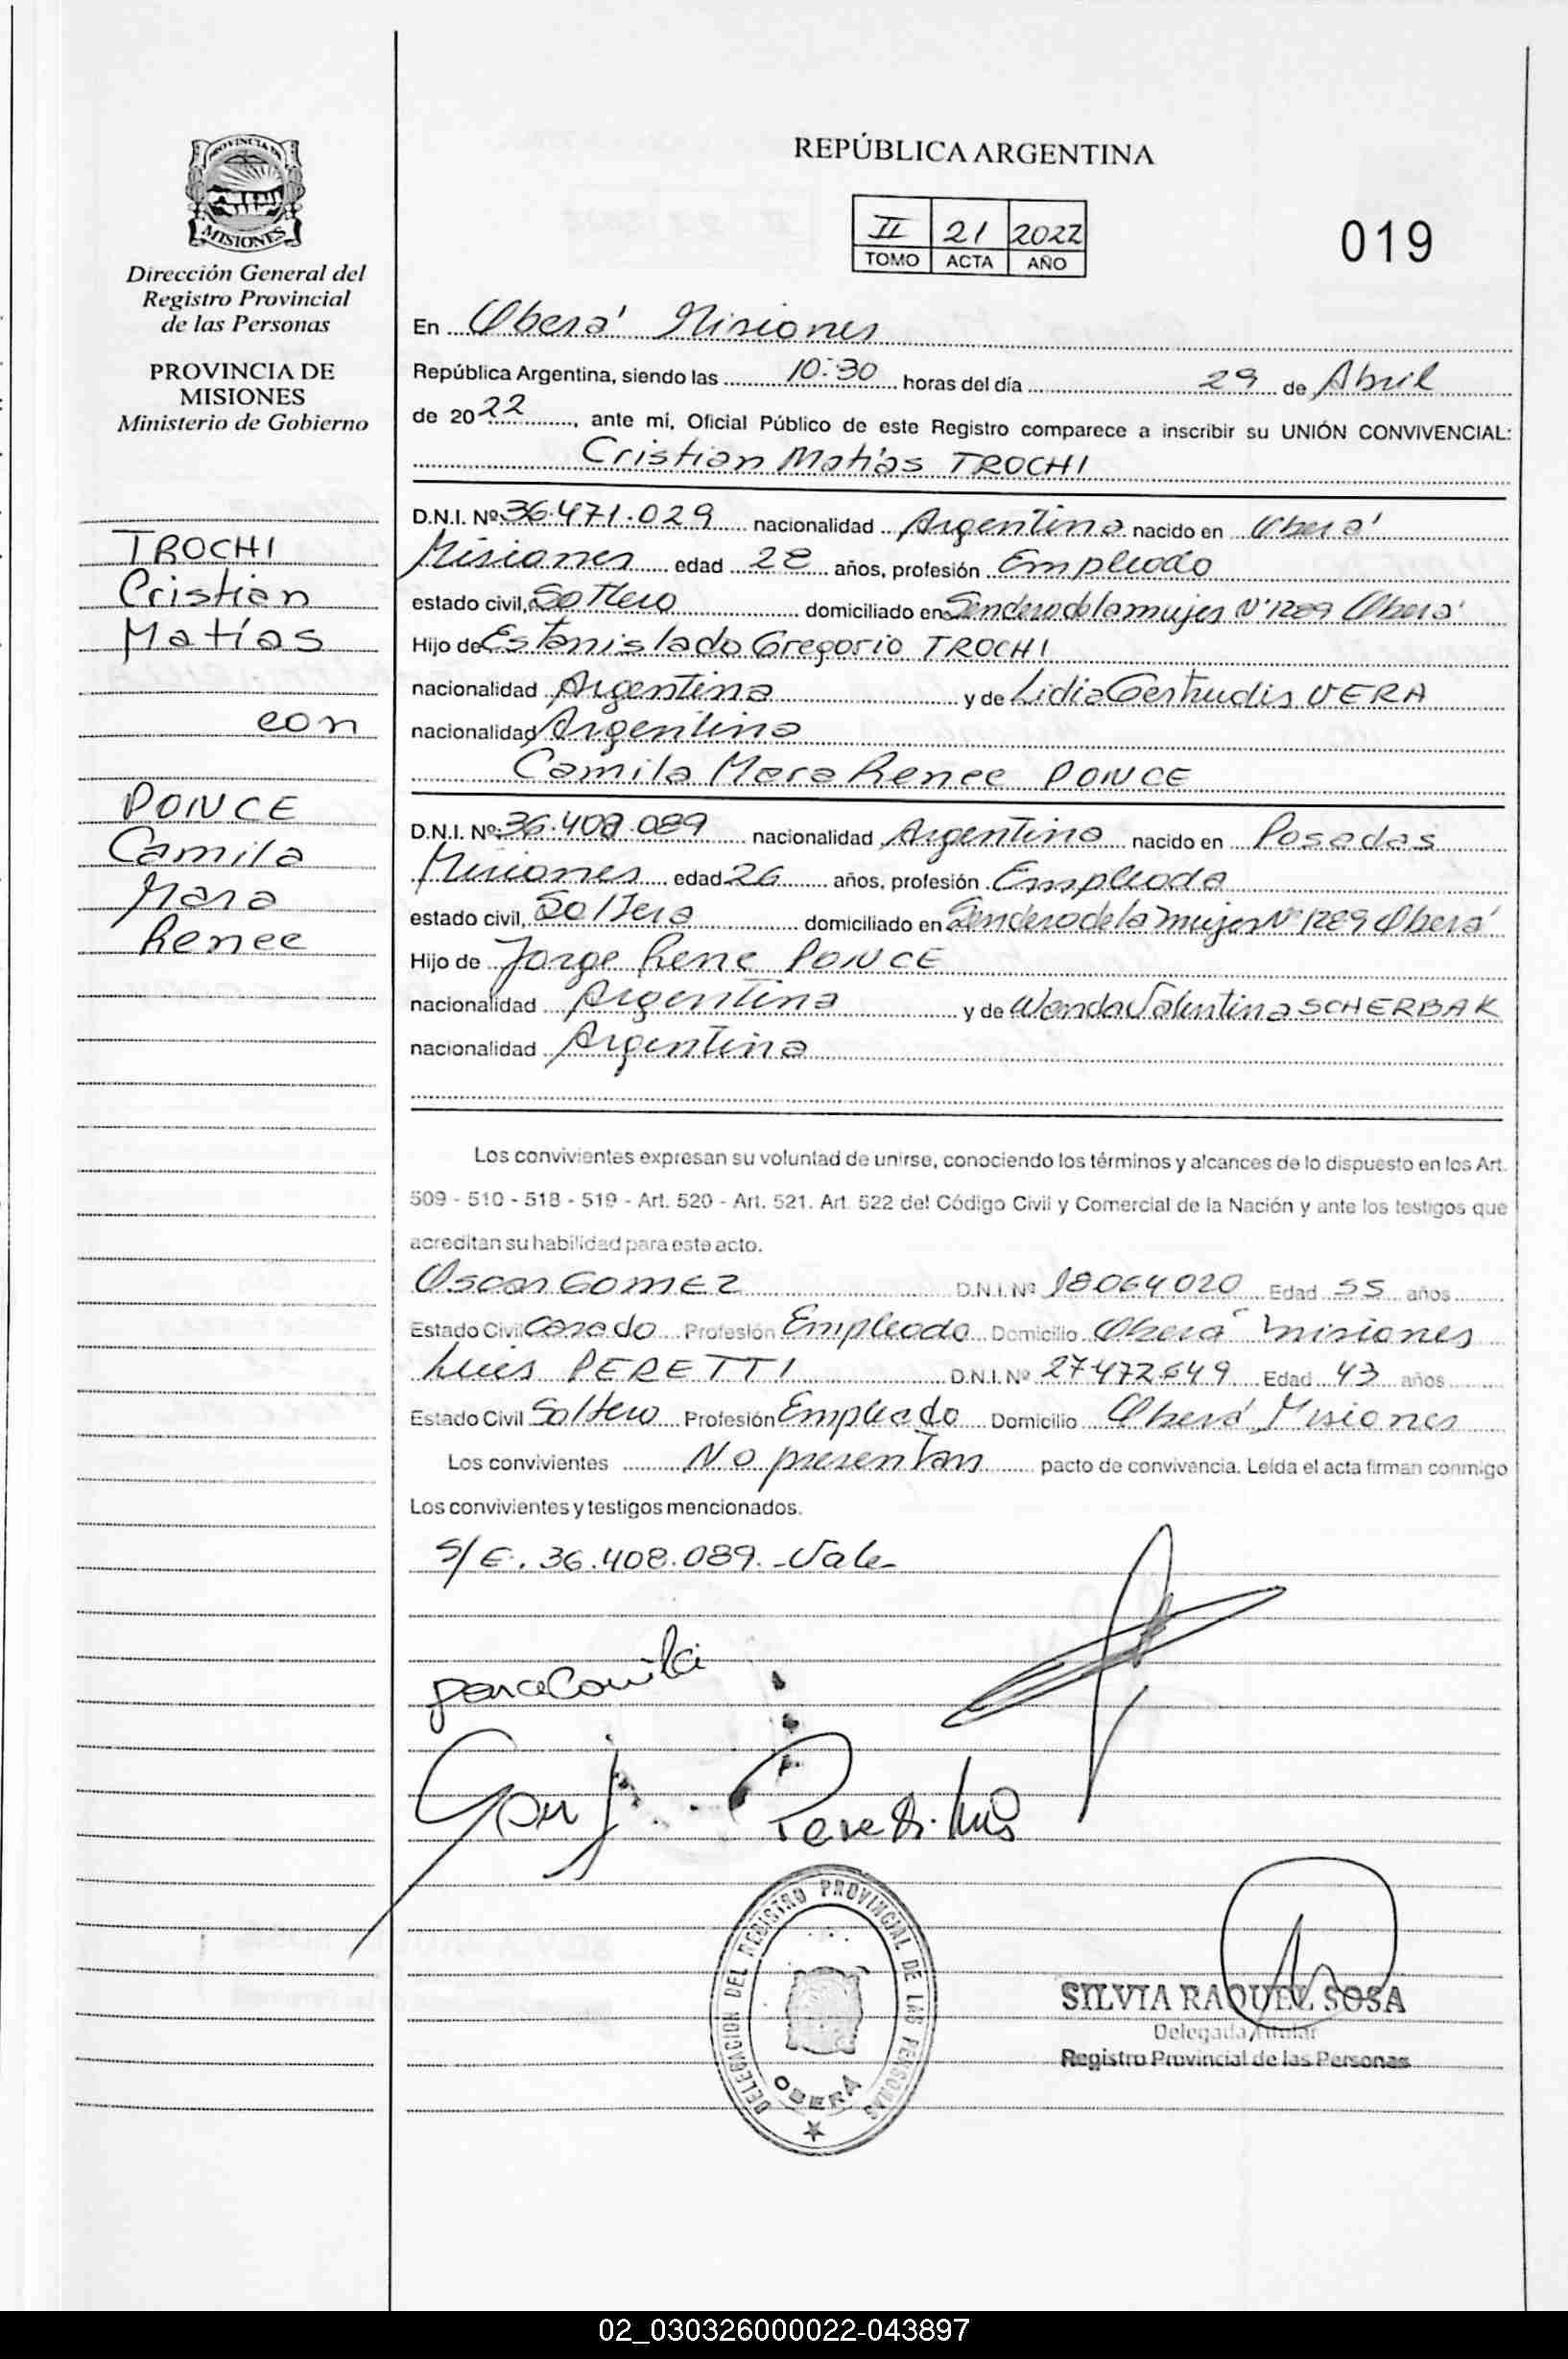 PROVINCIA DE
MISIONES
Dirección General del
Registro Provincial
de las Personas
PROVINCIA DE
MISIONES
Ministerio de Gobierno
TROCHI
Cristian
Matías
con
PONCE
Camila
Mara
Renee
REPÚBLICA ARGENTINA
II 21 2022
TOMO ACTA AÑO
019
En Oberá Misiones
República Argentina, siendo las 10:30 horas del día 29 de Abril
de 2022, ante mí, Oficial Público de este Registro comparece a inscribir su UNIÓN CONVIVENCIAL:
Cristian Matías TROCHI
D.N.I. Nº 36.471.029 nacionalidad Argentina nacido en Oberá
Misiones edad 28 años, profesión Empleado
estado civil, Soltero domiciliado en Sendero de la mujer Nº 1289 Oberá
Hijo de Estanislado Gregorio TROCHI
nacionalidad Argentina y de Lidia Gertrudis VERA
nacionalidad Argentina
Camila Mara Renee PONCE
D.N.I. Nº 36.408.089 nacionalidad Argentina nacido en Posadas
Misiones edad 26 años, profesión Empleada
estado civil, Soltera domiciliado en Sendero de la mujer Nº 1289 Oberá
Hijo de Jorge Rene PONCE
nacionalidad Argentina y de Wanda Valentina SCHERBAK
nacionalidad Argentina
Los convivientes expresan su voluntad de unirse, conociendo los términos y alcances de lo dispuesto en los Art.
509 - 510 - 518 - 519 - Art. 520 - Art. 521. Art. 522 del Código Civil y Comercial de la Nación y ante los testigos que
acreditan su habilidad para este acto.
Oscar GOMEZ D.N.I. Nº 18064020 Edad 55 años
Estado Civil Casado Profesión Empleado Domicilio Oberá Misiones
Luis PERETTI D.N.I. Nº 27472649 Edad 43 años
Estado Civil Soltero Profesión Empleado Domicilio Oberá Misiones
Los convivientes No presentan pacto de convivencia. Leída el acta firman conmigo
Los convivientes y testigos mencionados.
S/E. 36.408.089. Vale
Camila
Peretti Luis
DELEGACION DEL REGISTRO PROVINCIAL DE LAS PERSONAS
OBERÁ
SILVIA RAQUEL SOSA
Delegada Titular
Registro Provincial de las Personas
02_030326000022-043897